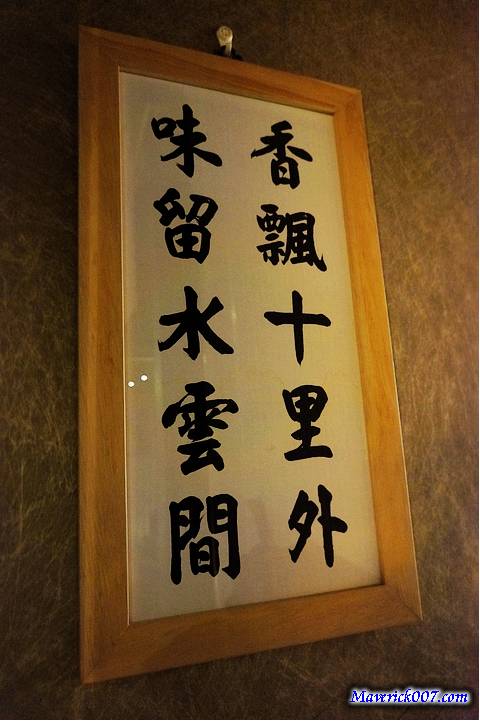 香飄十里外
味留水雲間
Maverick007.com